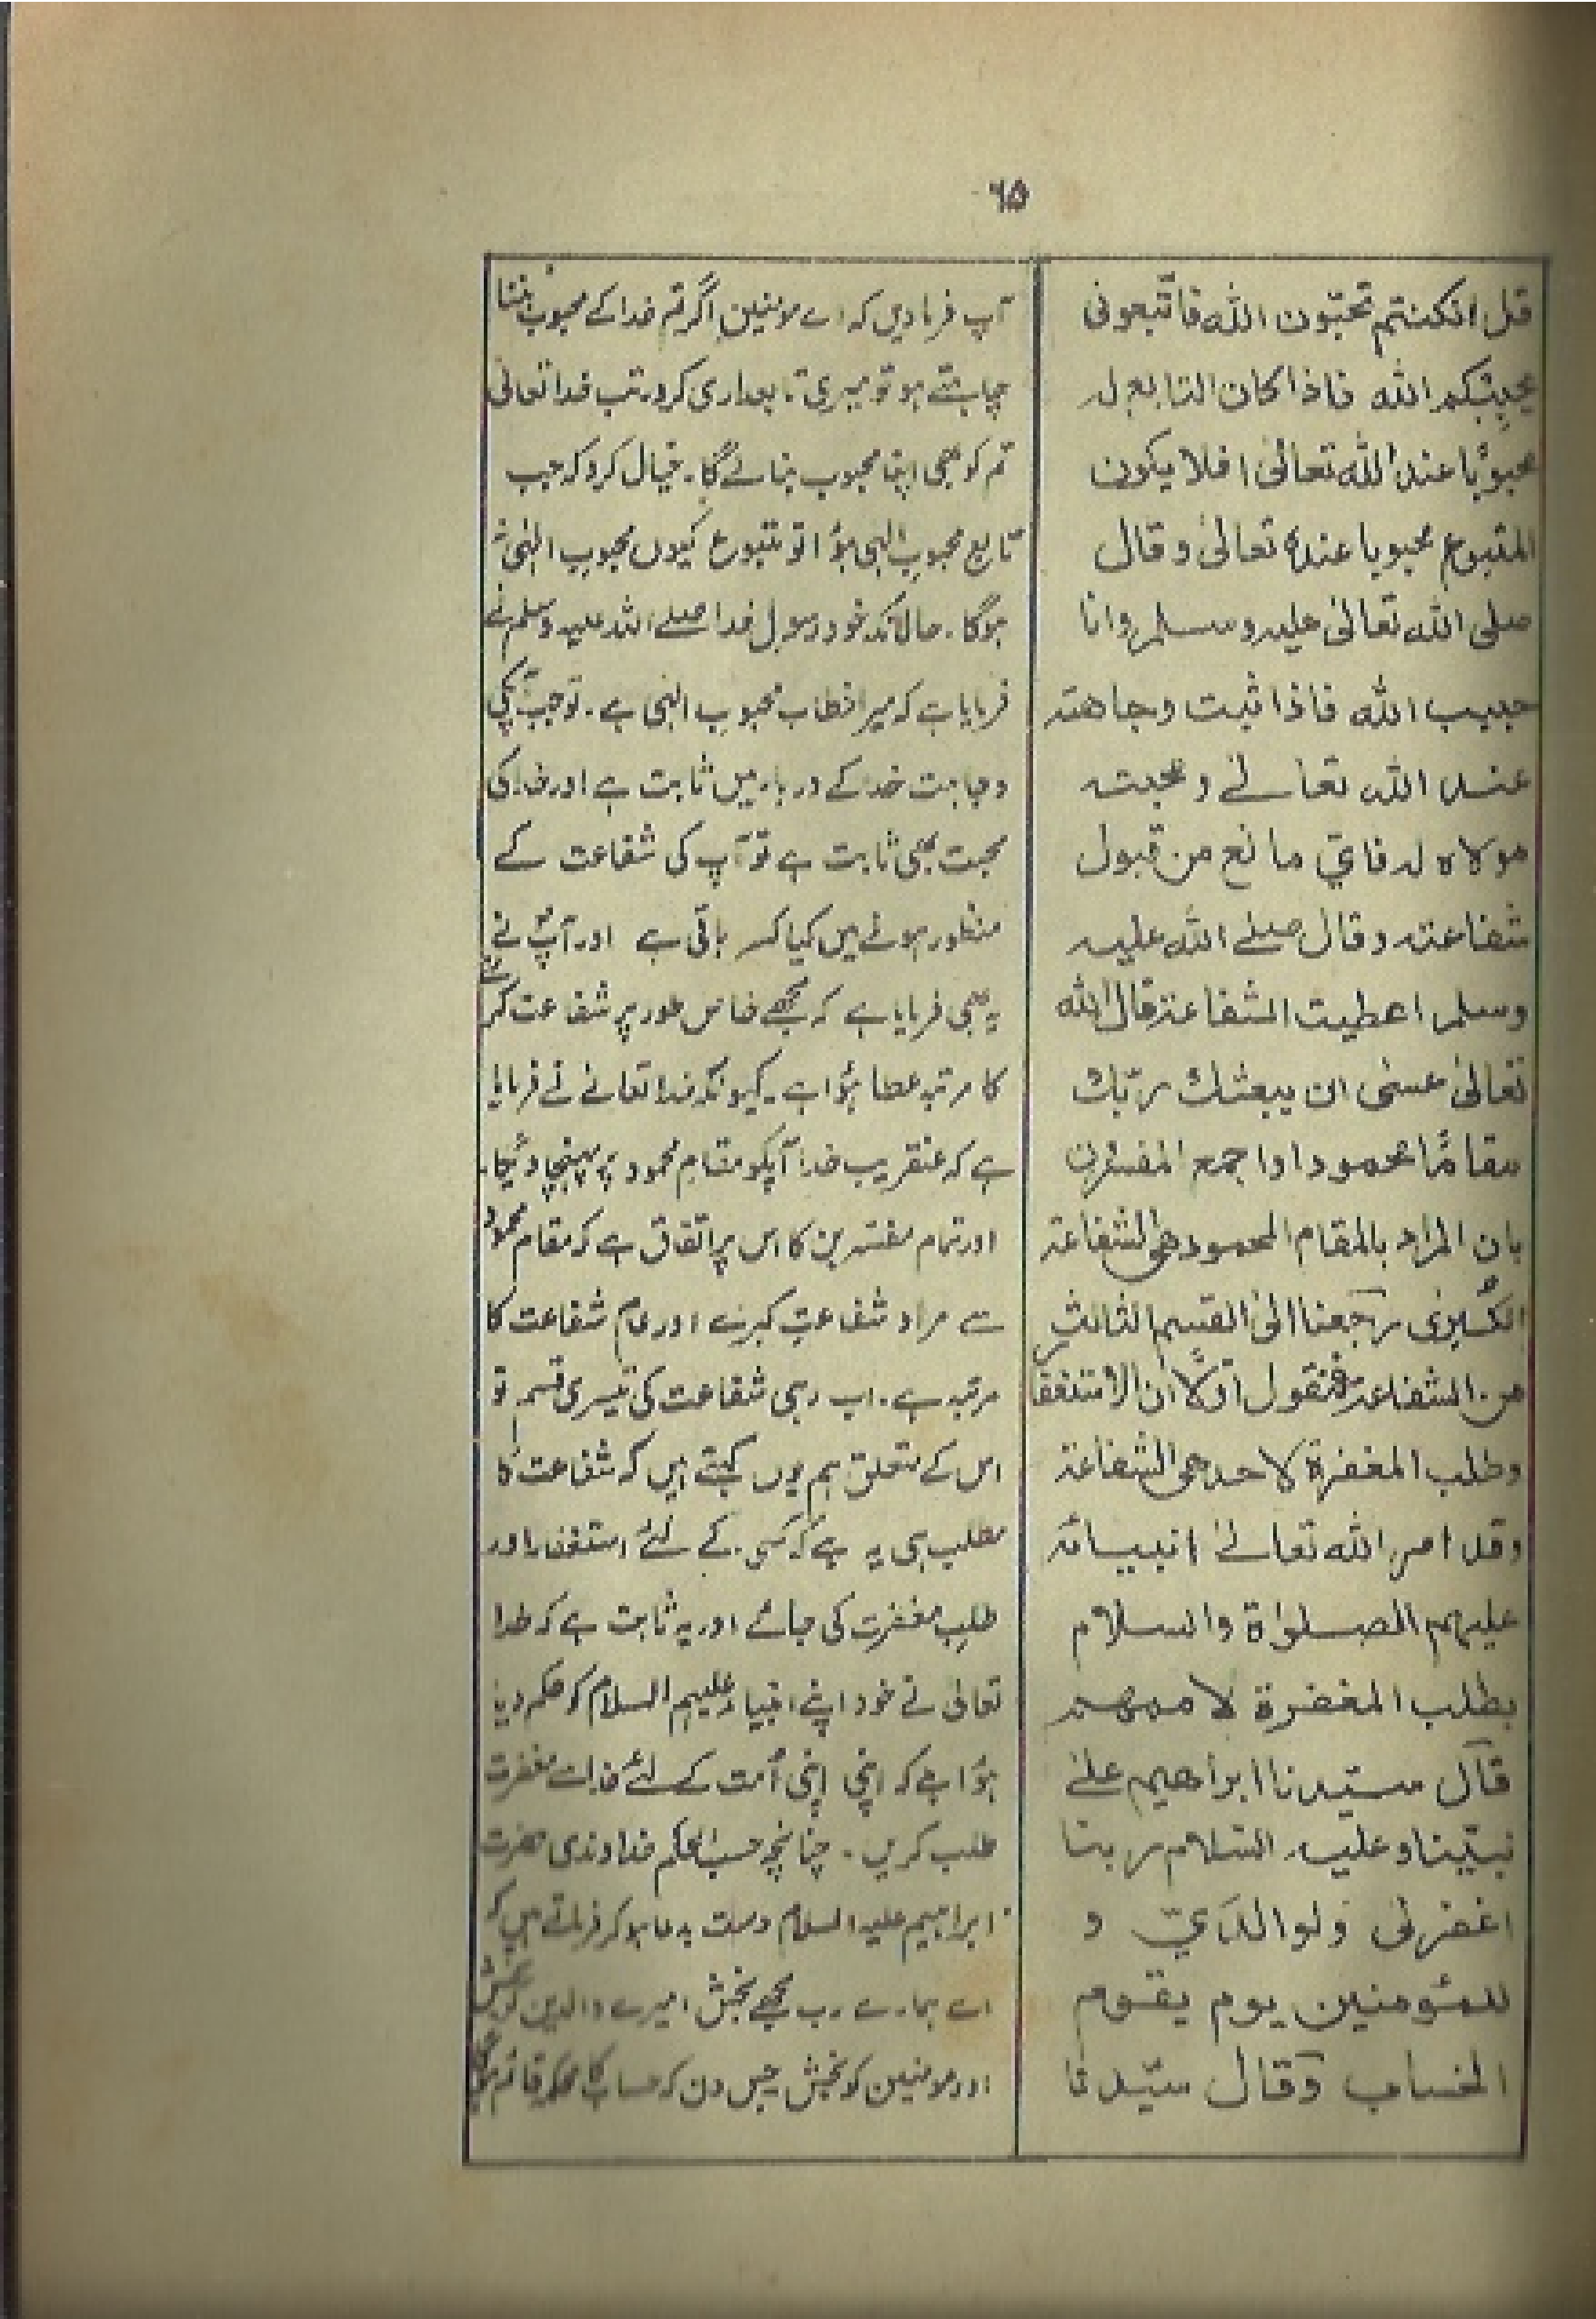 ٦٥
قل ان كنتم تحبّون الله فاتّبعونى
يحببكم الله فاذا كان التابع له
محبوبًا عند الله تعالىٰ افلا يكون
المتبوع محبوبا عندهٗ تعالىٰ وقال
صلى الله تعالىٰ عليه وسلم وانا
حبيب الله فاذا ثبت وجاهته
عند الله تعالے ومحبت
مولاه له فاىّ مانع من قبول
شفاعته وقال صلے الله عليه
وسلم اعطيت الشفاعة قال الله
تعالىٰ عسىٰ ان يبعثك ربّك
مقامًا محمودا واجمع المفسّرين
بان المراد بالمقام المحمود هى الشفاعة
الكُبرى رجعنا الى القسم الثالث
من الشفاعة فنقول اوّلًا ان الاستغفار
وطلب المغفرة لاحد هى الشفاعة
وقد امر الله تعالےٰ انبيائه
عليهم الصلوٰة والسلام
بطلب المغفرة لاممهم
قال سيّدنا ابراهيم علىٰ
نبيّنا وعليه السّلام ربنا
اغفرلى ولوالدىّ و
للمؤمنين يوم يقوم
الحساب وقال سيّدنا
آپ فرمادیں کہ اے مومنین اگر تم خدا کے محبوب بننا
چاہتے ہو تو میری تابعداری کرو تب خدا تعالیٰ
تم کو بھی اپنا محبوب بنائے گا۔ خیال کرو کہ جب
تابع محبوب الٰہی ہؤا تو متبوع کیوں محبوب الٰہی نہ
ہوگا۔ حالانکہ خود رسول خدا صلے اللہ علیہ وسلم نے
فرمایا ہے کہ میرا خطاب محبوب الٰہی ہے۔ تو جب آپ کی
وجاہت خدا کے دربار میں ثابت ہے اور خدا کی
محبت بھی ثابت ہے تو آپ کی شفاعت کے
منظور ہونے میں کیا کسر باقی ہے اور آپؐ نے
یہ بھی فرمایا ہے کہ مجھے خاص طور پر شفاعت کرنے
کا مرتبہ عطا ہؤا ہے۔ کیونکہ خدا تعالےٰ نے فرمایا
ہے کہ عنقریب خدا آپکو مقام محمود پر پہنچا دئیگا۔
اور تمام مفسّرین کا اس پر اتفاق ہے کہ مقام محمود
سے مراد شفاعت کبرےٰ اور عام شفاعت کا
مرتبہ ہے۔ اب رہی شفاعت کی تیسری قسم تو
اس کے متعلق ہم یوں کہتے ہیں کہ شفاعت کا
مطلب ہی یہ ہے کہ کسی کے لئے استغفار اور
طلب مغفرت کی جائے اور یہ ثابت ہے کہ خدا
تعالیٰ نے خود اپنے انبیاء علیہم السلام کو حکم دیا
ہؤا ہے کہ اپنی اپنی اُمت کے لئے خدا سے مغفرت
طلب کریں۔ چنانچہ حسب الحکم خداوندی حضرت
ابراہیم علیہ السلام دست بدعا ہو کر فرماتے ہیں کہ
اے ہمارے رب مجھے بخش میرے والدین کو بخش
اور مومنین کو بخش جس دن کہ حساب کا محکمہ قائم ہوگا